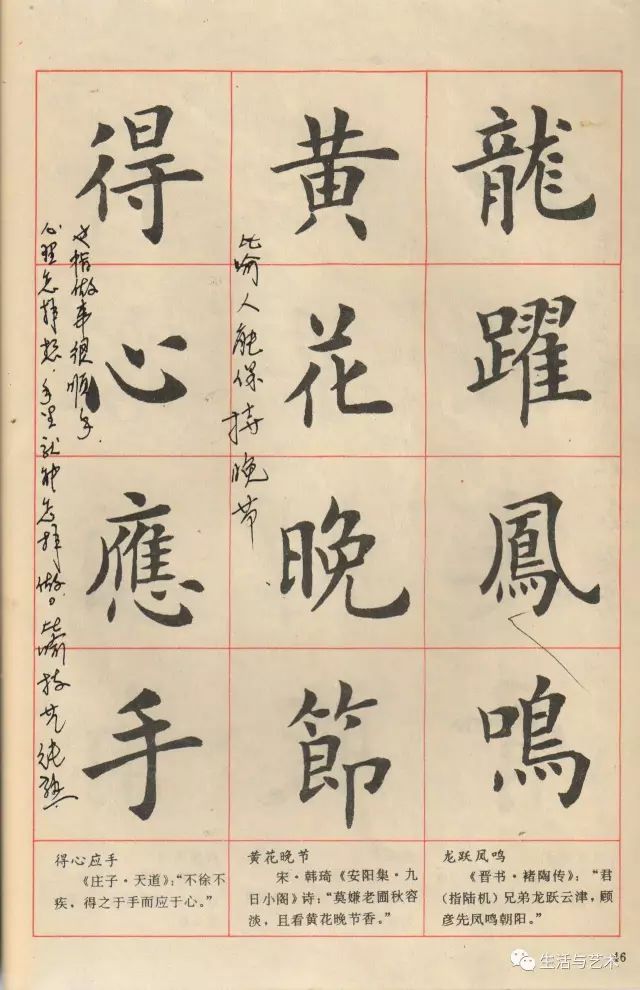 龍躍鳳鳴
龙跃凤鸣
《晋书·褚陶传》：“君
（指陆机）兄弟龙跃云津，顾
彦先凤鸣朝阳。”
黄花晚節
比喻人能保持晚节
黄花晚节
宋·韩琦《安阳集·九
日小阁》诗：“莫嫌老圃秋容
淡，且看黄花晚节香。”
得心應手
也指做事很顺手
心理怎样想.手里就能怎样做。比喻技艺纯熟
得心应手
《庄子·天道》：“不徐不
疾，得之于手而应于心。”
46
生活与艺术